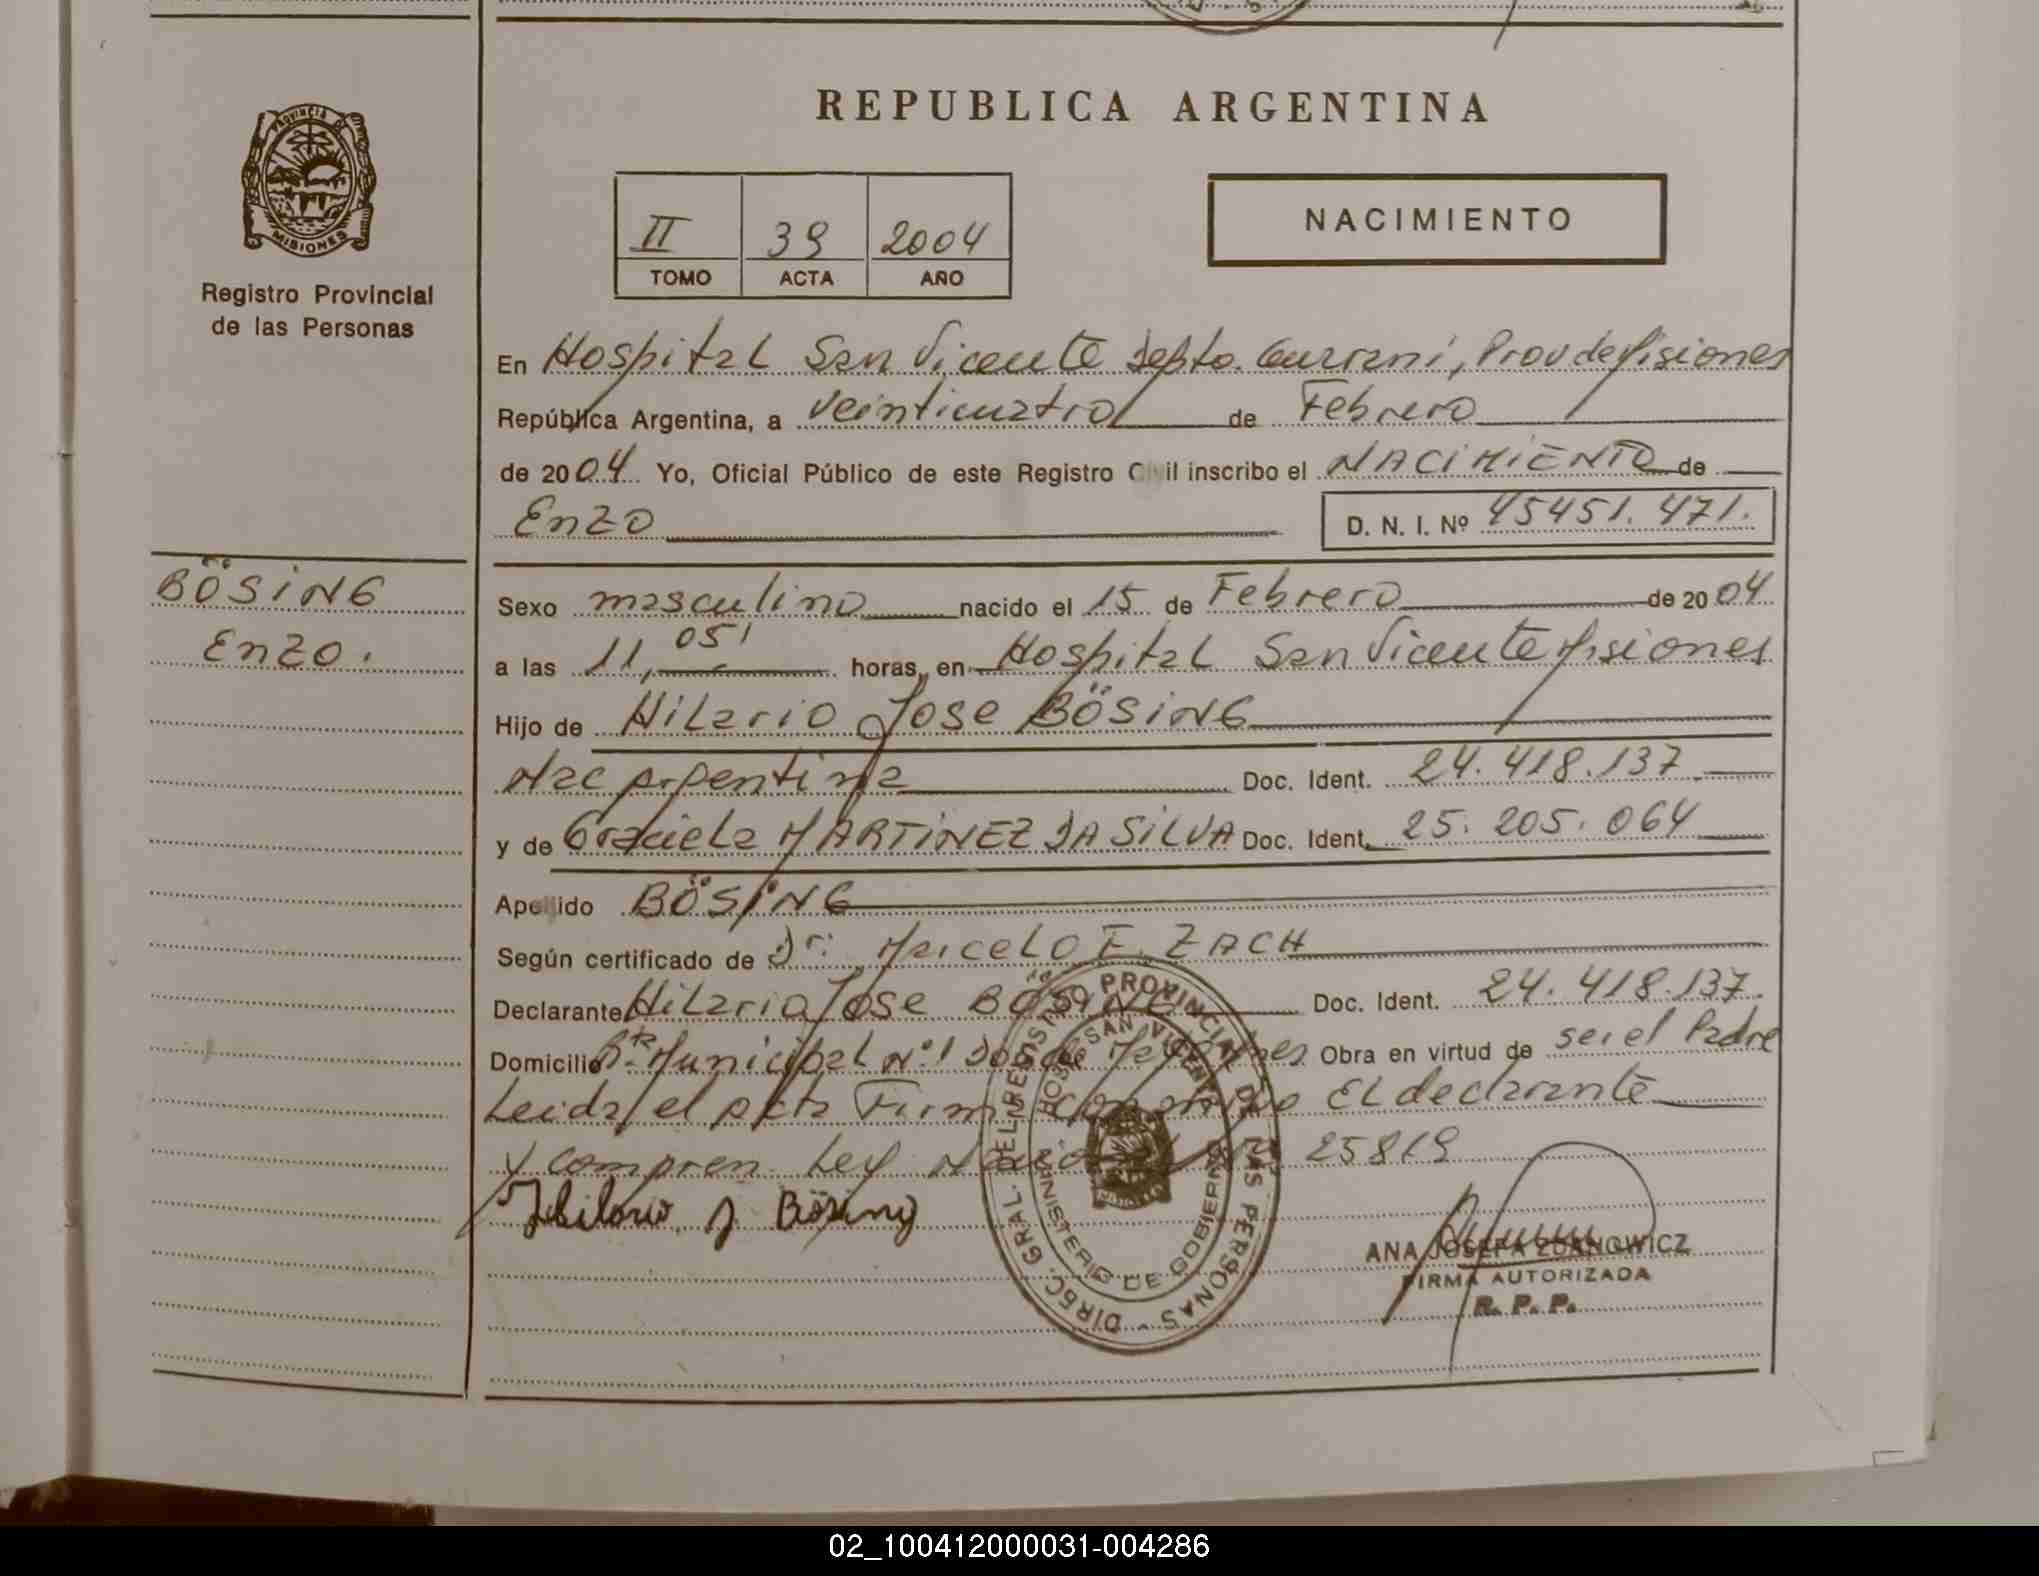 REPUBLICA ARGENTINA
PROVINCIA DE
MISIONES
Registro Provincial
de las Personas
II 39 2004
TOMO ACTA AÑO
NACIMIENTO
En Hospital San Vicente Depto. Guaraní, Prov de Misiones
República Argentina, a veinticuatro de Febrero
de 2004 Yo, Oficial Público de este Registro Civil inscribo el NACIMIENTO de
Enzo D. N. I. Nº 45451.471.
BÖSING
Enzo.
Sexo masculino nacido el 15 de Febrero de 2004
a las 11,05' horas, en Hospital San Vicente Misiones
Hijo de Hilario Jose BÖSING
Nac Argentina Doc. Ident. 24.418.137
y de Graciela MARTINEZ DA SILVA Doc. Ident. 25.205.064
Apellido BÖSING
Según certificado de Dr. Marcelo F. ZACH
Declarante Hilario Jose BÖSING Doc. Ident. 24.418.137.
Domicilio Bº Municipal Nº1 Obra en virtud de ser el Padre
Leida el acta Firma El declarante
y compren. Ley 25819
Hilario J. Bösing
DIREC. GRAL. DEL REGISTRO PROVINCIAL DE LAS PERSONAS
HOSP. SAN VICENTE
MINISTERIO DE GOBIERNO
MISIONES
ANA JOSEFA ZDANOWICZ
FIRMA AUTORIZADA
R. P. P.
02_100412000031-004286